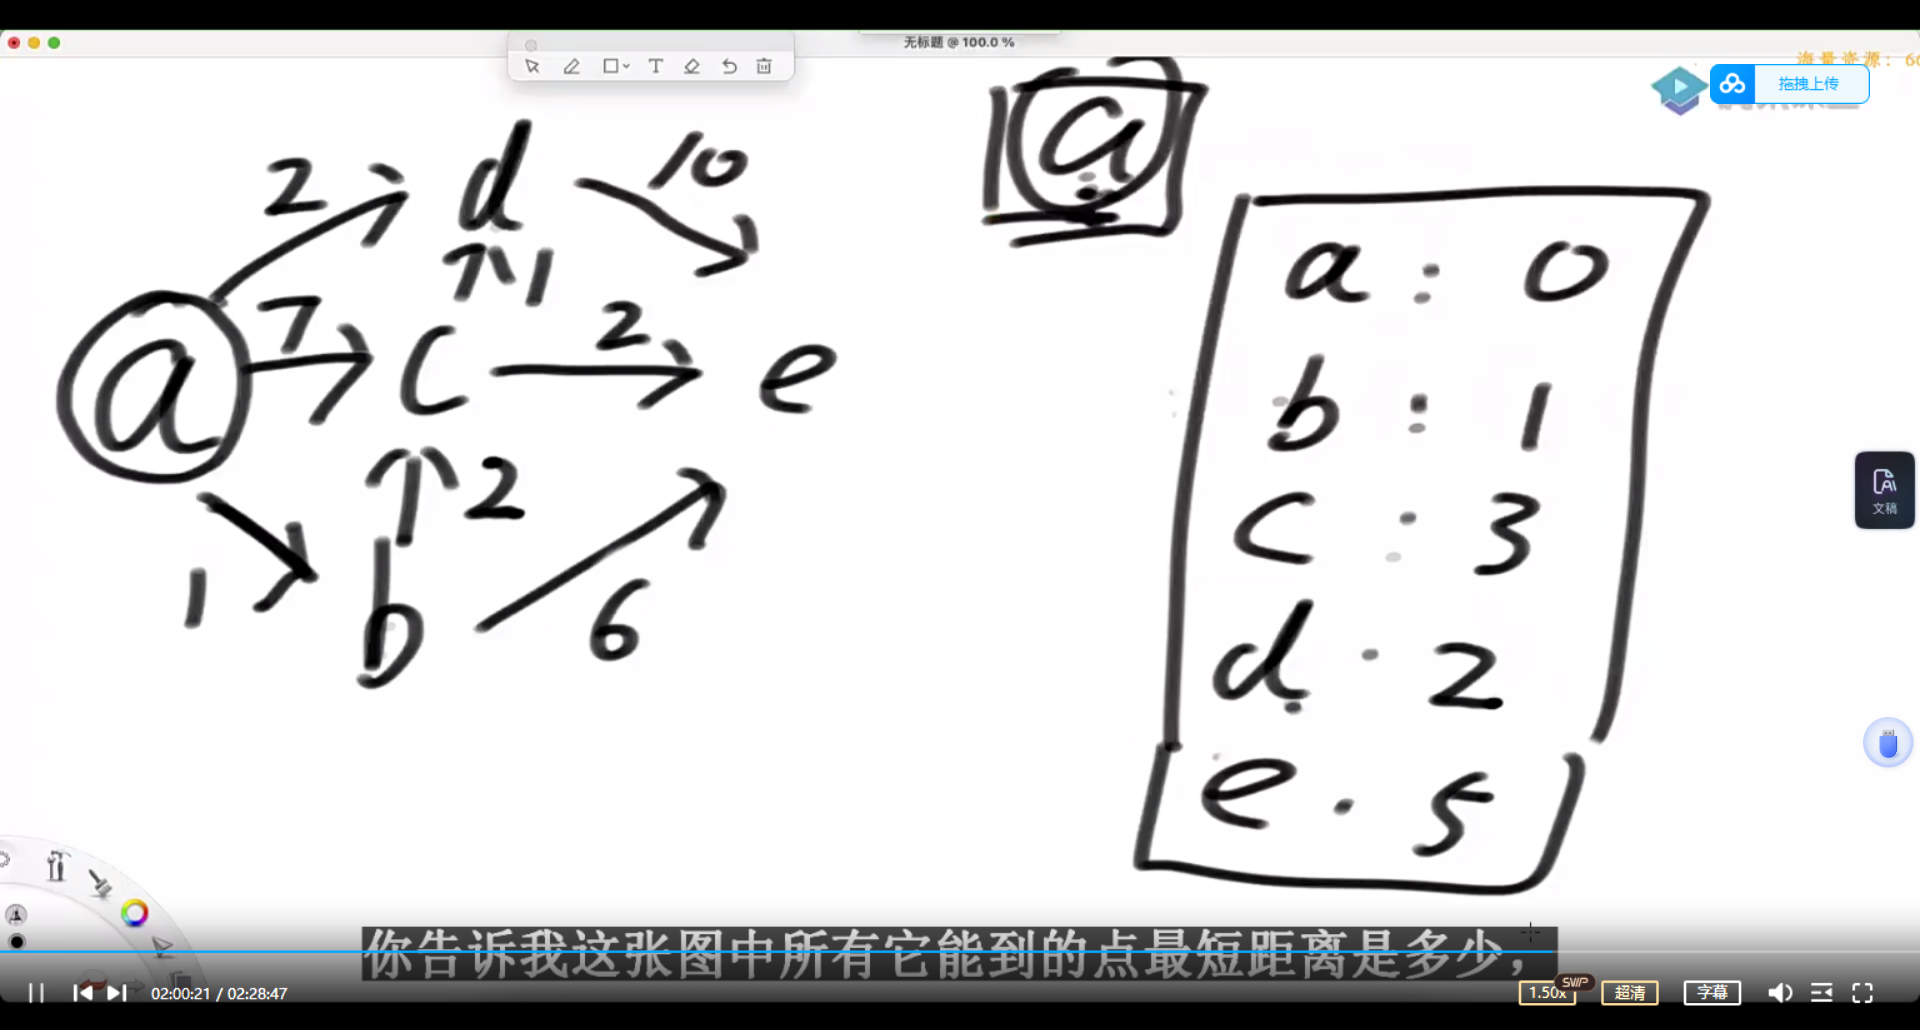 无标题 @ 100.0 %
海量资源：
拖拽上传
T
a
2
d
10
1
7
a
c
2
e
2
1
b
6
a : 0
b : 1
c : 3
d : 2
e · 5
文稿
你告诉我这张图中所有它能到的点最短距离是多少，
02:00:21 / 02:28:47
1.50x
SVIP
超清
字幕